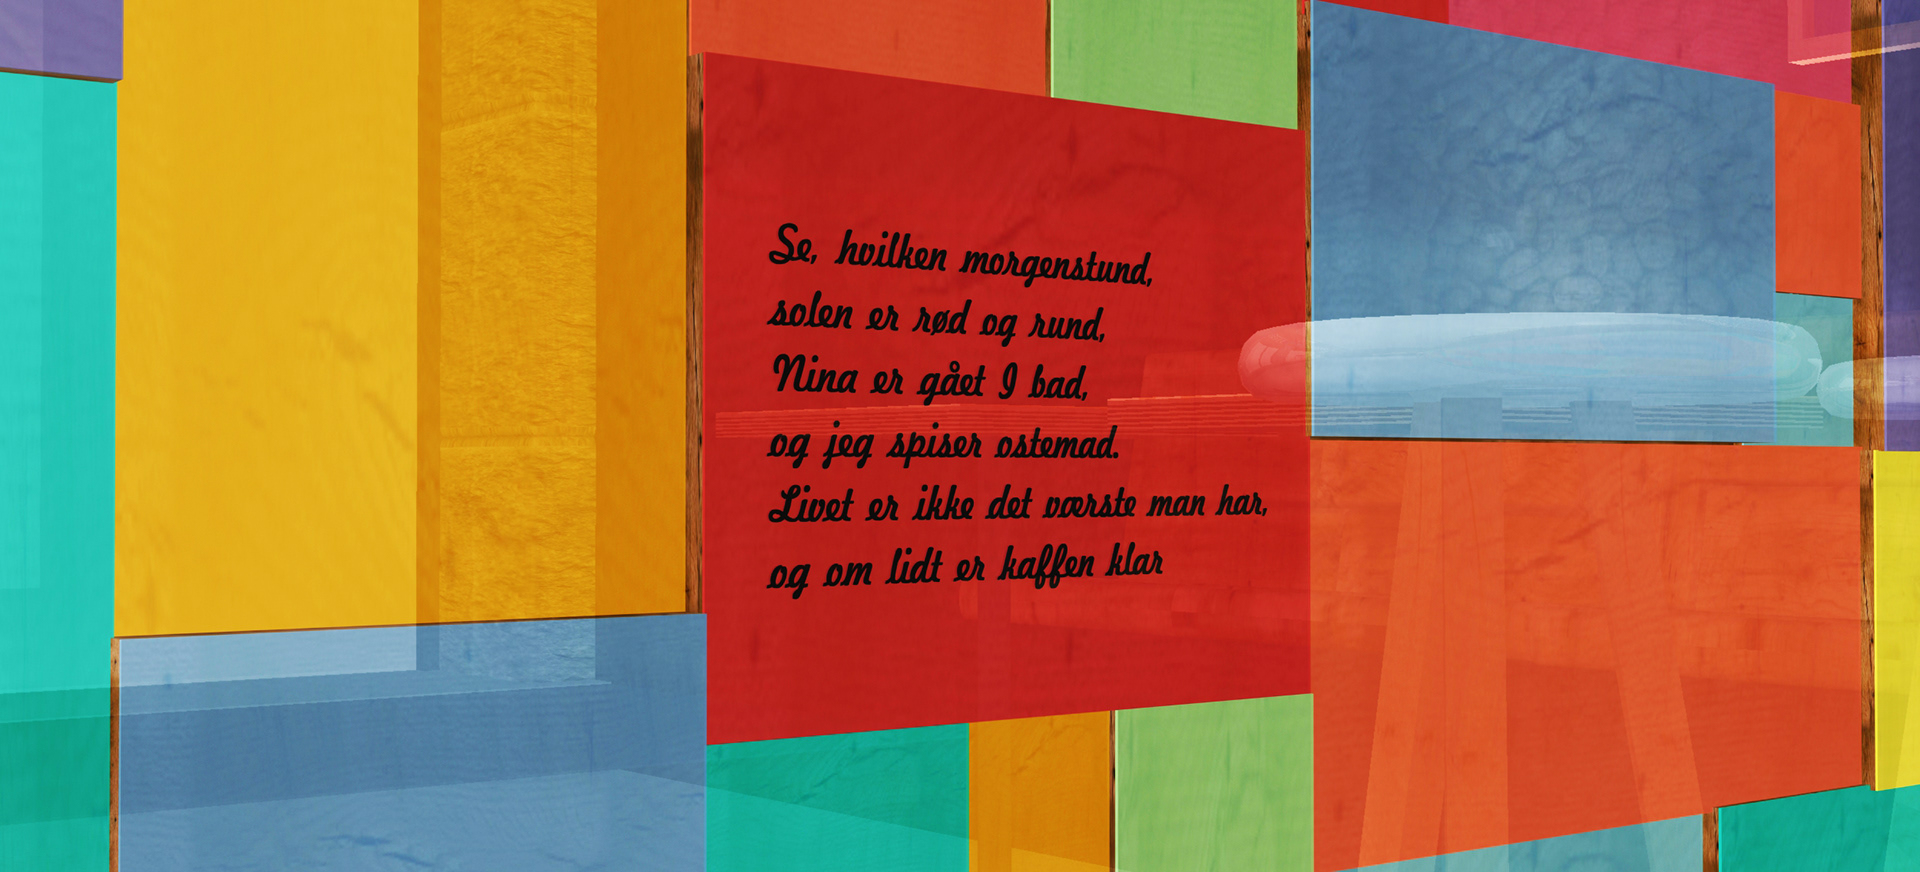 Se, hvilken morgenstund,
solen er rød og rund,
Nina er gået I bad,
og jeg spiser ostemad.
Livet er ikke det værste man har,
og om lidt er kaffen klar